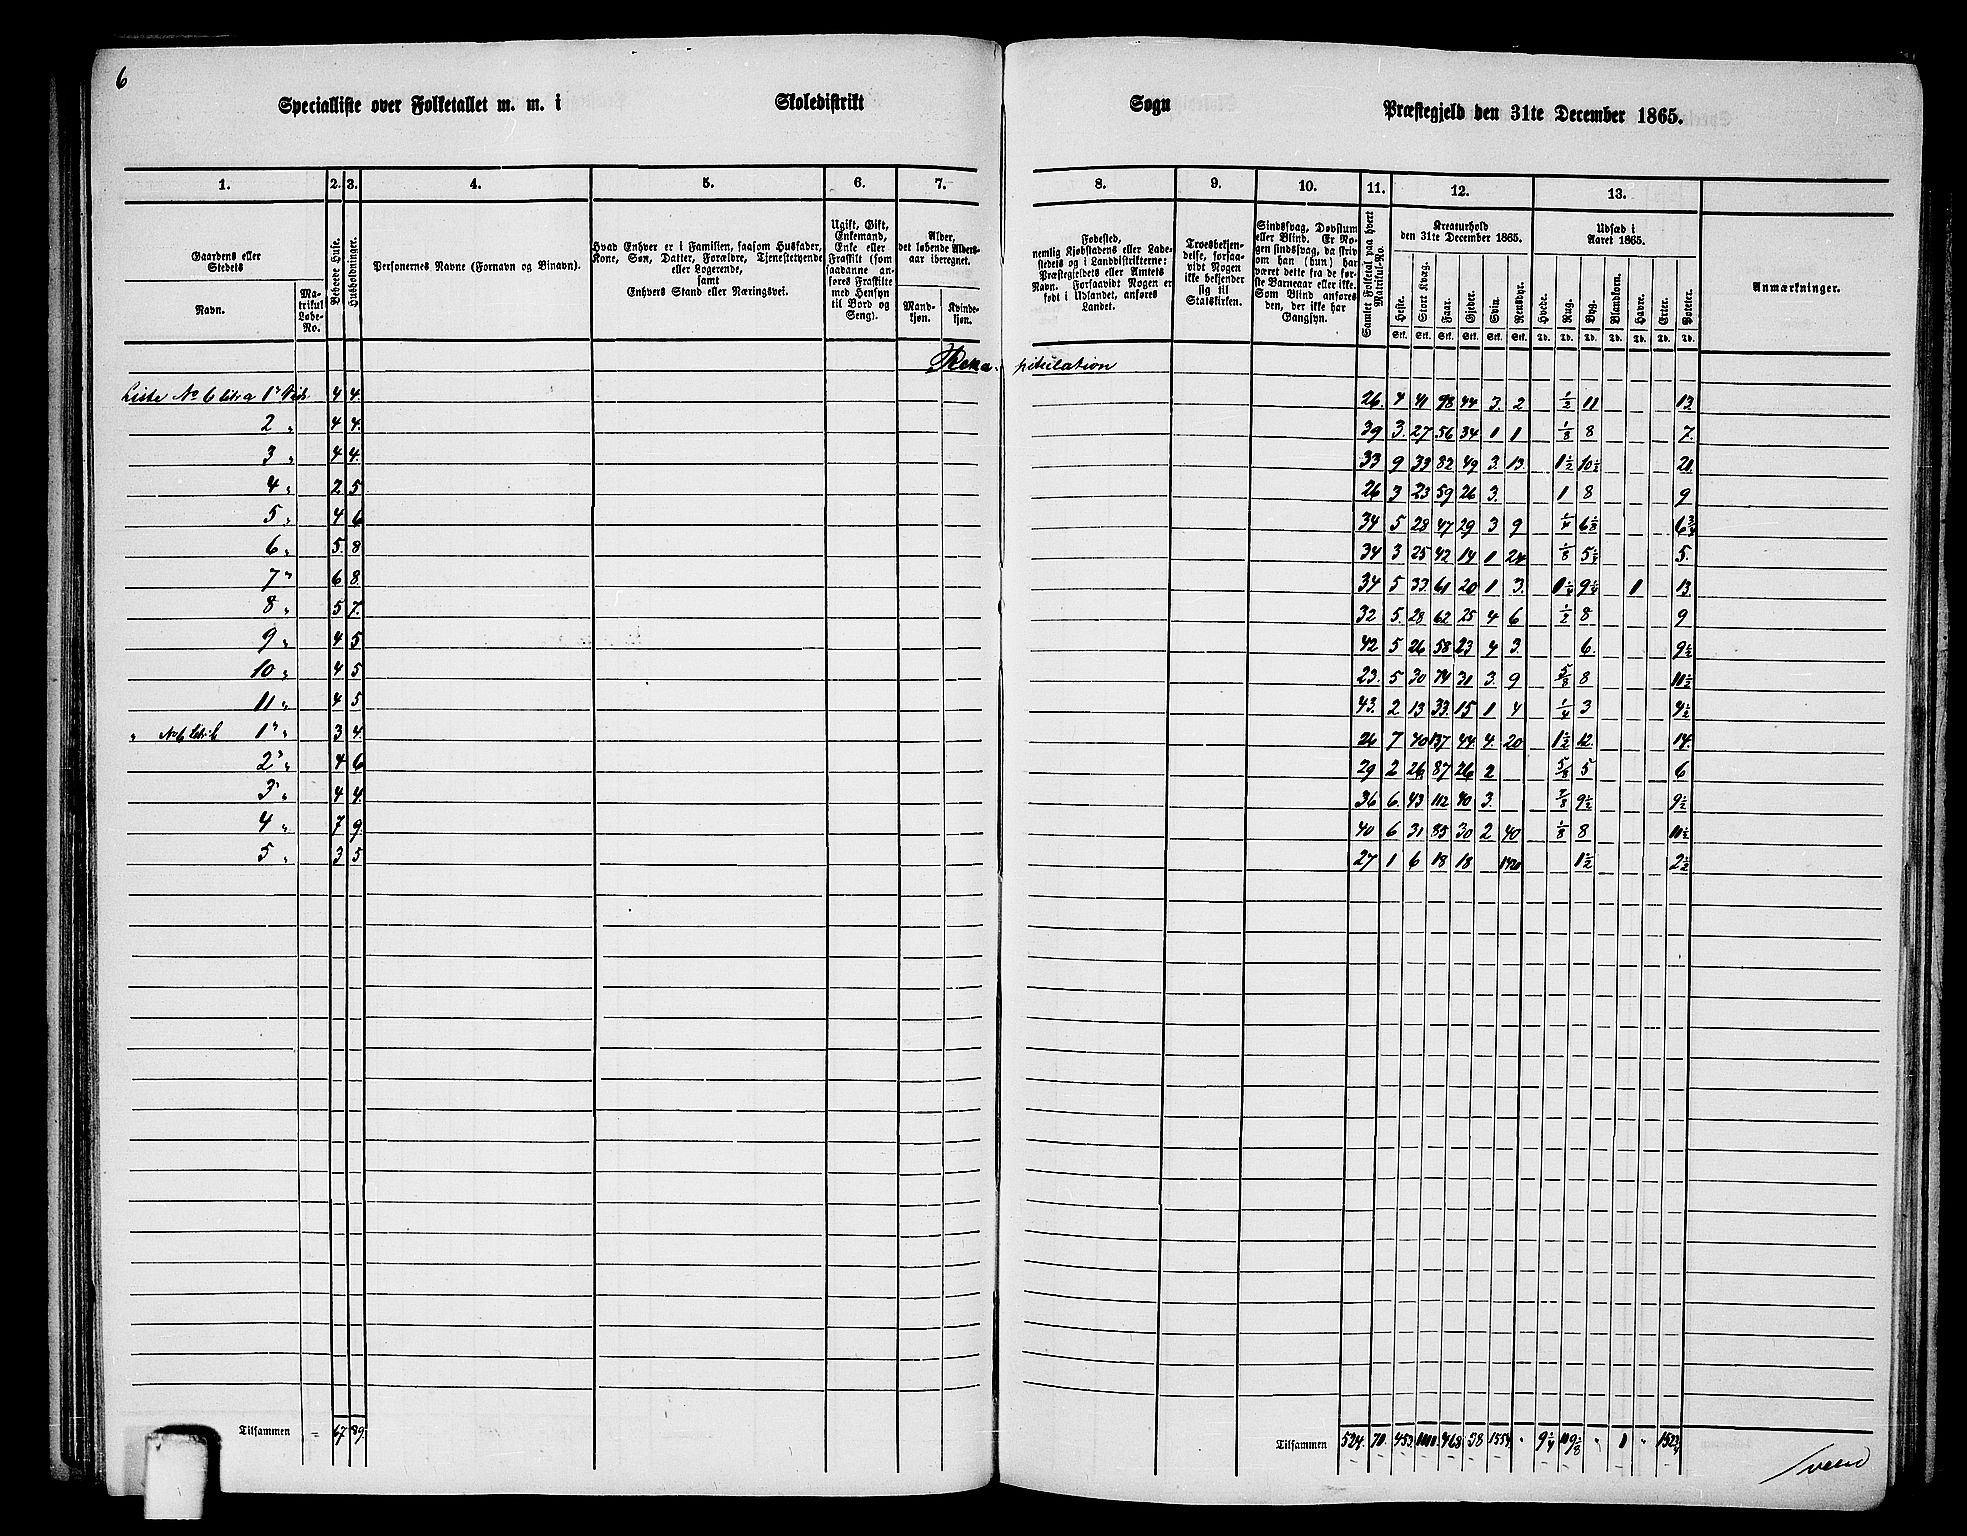 6
Specialliste over Folketallet m. m. i Skoledistrikt Sogn Præstegjeld den 31te December 1865.
1. 2. 3. 4. 5. 6. 7. 8. 9. 10. 11. 12. 13.
Gaardens eller Stedets
Navn.
Matrikul Løbe-No.
Beboede Huse.
Husholdninger.
Personernes Navne (Fornavn og Binavn).
Hvad Enhver er i Familien, saasom Husfader, Kone, Søn, Datter, Forældre, Tjenestetyende eller Logerende,
samt
Enhvers Stand eller Næringsvei.
Ugift, Gift, Enkemand, Enke eller Fraskilt (som saadanne anføres Fraskilte med Hensyn til Bord og Seng).
Alder, det løbende Aldersaar iberegnet.
Mandkjøn.
Kvindekjøn.
Fødested,
nemlig Kjøbstadens eller Ladestedets og i Landdistrikterne: Præstegjeldets eller Amtets Navn. Forsaavidt Nogen er født i Udlandet, anføres Landet.
Troesbekjendelse, forsaavidt Nogen ikke bekjender sig til Statskirken.
Sindssvag, Døvstum eller Blind. Er Nogen sindssvag, da skriv om han (hun) har været dette fra de første Barneaar eller ikke. Som Blind anføres den, der ikke har Gangsyn.
Samlet Folketal paa hvert Matrikul-No.
Kreaturhold
den 31te December 1865.
Heste. Stort Kvæg. Faar. Gjeder. Svin. Rensdyr.
Stk. Stk. Stk. Stk. Stk. Stk.
Udsæd i
Aaret 1865.
Hvede. Rug. Byg. Blandkorn. Havre. Erter. Poteter.
Td. Td. Td. Td. Td. Td. Td.
Anmærkninger.
Rekapitulation
Liste No 6 litra a 1ste Side 4 4. 26. 4 41 98 44 3. 2 1/2 11 13.
2 " 4 4. 39 3. 27 56 34 1 1 1/8 8 7.
3 " 4 4. 33 9 33 82 49 3. 13 1 1/2 10 1/2 20
4 " 2 5 26 3 23 59 26 3. 1 8 9
5 " 4 6 34 5 28 47 29 3 9 1/4 6 1/8 6 3/4
6 " 5. 8 34 3 25 42 14 1 24 1/8 5 1/2 5.
7 " 6 8. 34 5 33. 61 20 1 3. 1 1/4 9 1/4 1 13
8 " 5 7. 32 5. 28 62 25 4 6 1/2 8 9
9 " 4 5 42 5 26 58 23 4 3. 6. 9 1/2
10 " 4 5 23. 5 30 74 31 3. 9 5/8 8 11 1/2
11 " 4 5 43. 2 13 33. 15 1 4 1/4 3 4 1/2
" No 6 litr b 1 " 3 4. 26 7 40 137 44 4. 20 1 1/2 12. 14.
2 " 4 6 29 2 26 87 26 2 5/8 5 6
3 " 4 4. 36 6. 43 112 40 3. 7/8 9 1/2 9 1/2
4 " 7 9. 40 6 31 85 30 2 40 1/8 8 11 1/2
5 " 3 5 27 1 6 18 18 1 1/2 2 1/2
Tilsammen = 67. 89. Tilsammen 524. 70. 453. 468 38 1554. " 9 1/4 " 1 "